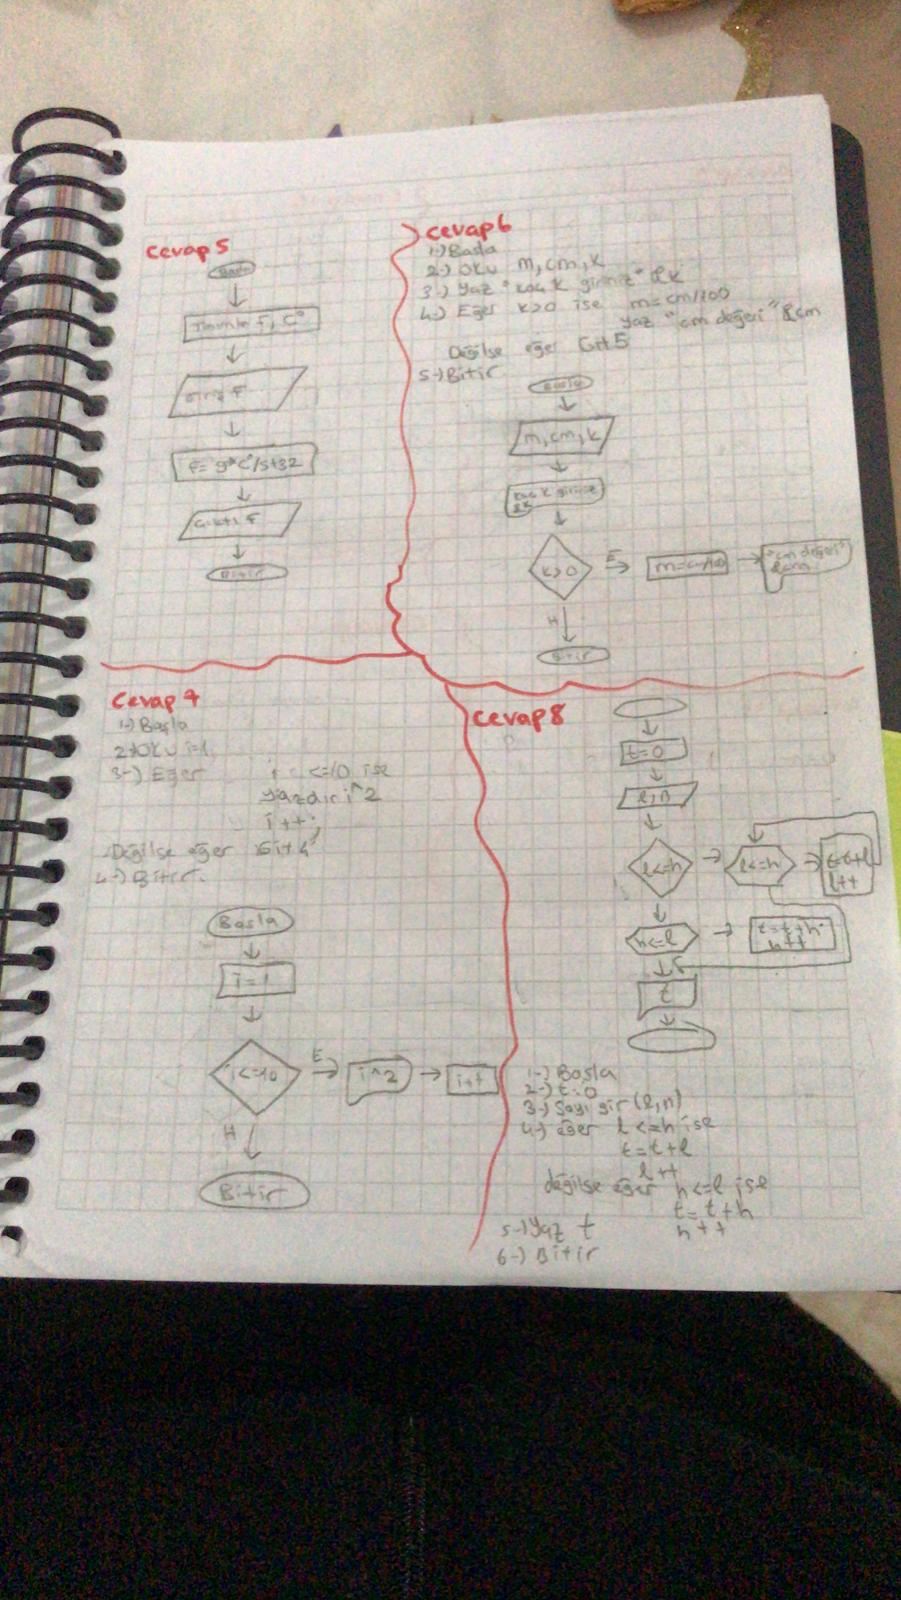 Cevap 5
Başla
F, C°
F
F= 9*C°/5+32
F
Bitir
Cevap 6
1-) Başla
2-) Oku m, cm, k
3-) Yaz "kaç k giriniz" &k
4-) Eğer k>0 ise m=cm/100
yaz "cm değeri" &cm
Değilse eğer Git 5
5-) Bitir
Başla
m, cm, k
kaç k giriniz
&k
k>0
E
m=cm/100
"cm değeri"
&cm
H
Bitir
Cevap 7
1-) Başla
2-) Oku i=1
3-) Eğer i <=10 ise
yazdır i^2
i++;
Değilse eğer Git 4
4-) Bitir.
Başla
i=1
i<=10
E
i^2
i++
H
Bitir
Cevap 8
t=0
l, n
l<=h
l<=h
t=t+l
l++
h<=l
t=t+h
h++
t
1-) Başla
2-) t=0
3-) Sayı gir (l,n)
4-) eğer l<=h ise
t=t+l
l++
değilse eğer h<=l ise
t=t+h
h++
5-) Yaz t
6-) Bitir